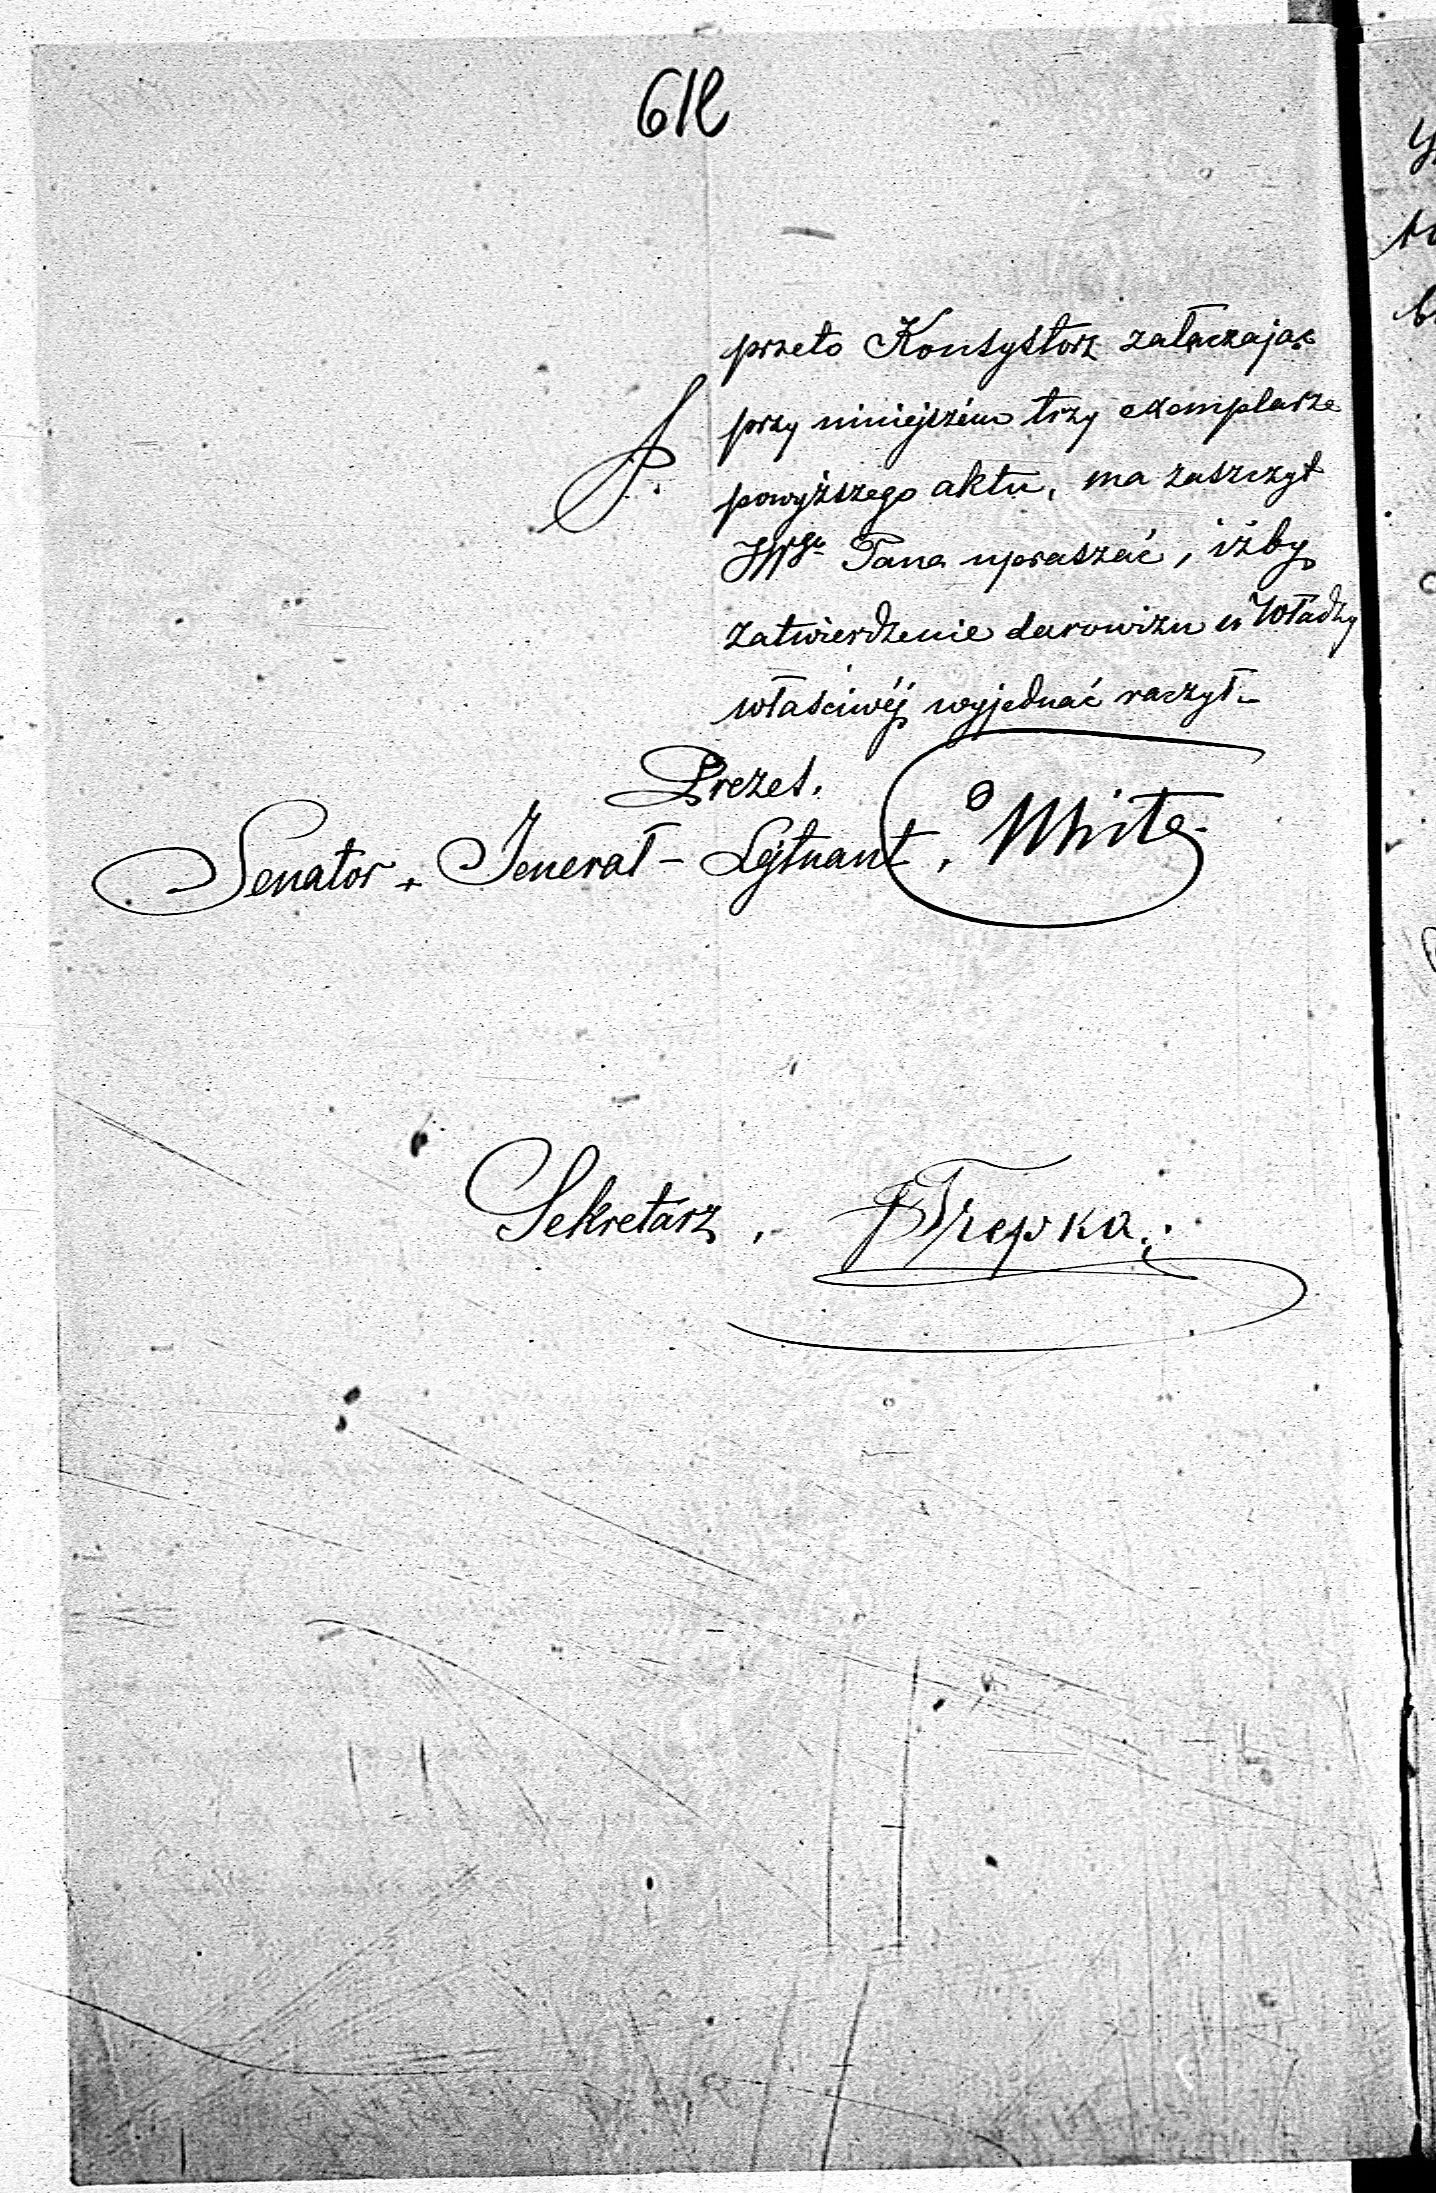 612
przeto Konsystorz załączając
przy niniejszém trzy exemplarze
powyższego aktu, ma zaszczyt
JWgo Pana upraszać, iżby
zatwierdzenie darowizn u Władzy
właściwéj wyjednać raczył.
Prezes.
Senator, Jenerał-Lejtnant, White.
Sekretarz, Trepka.